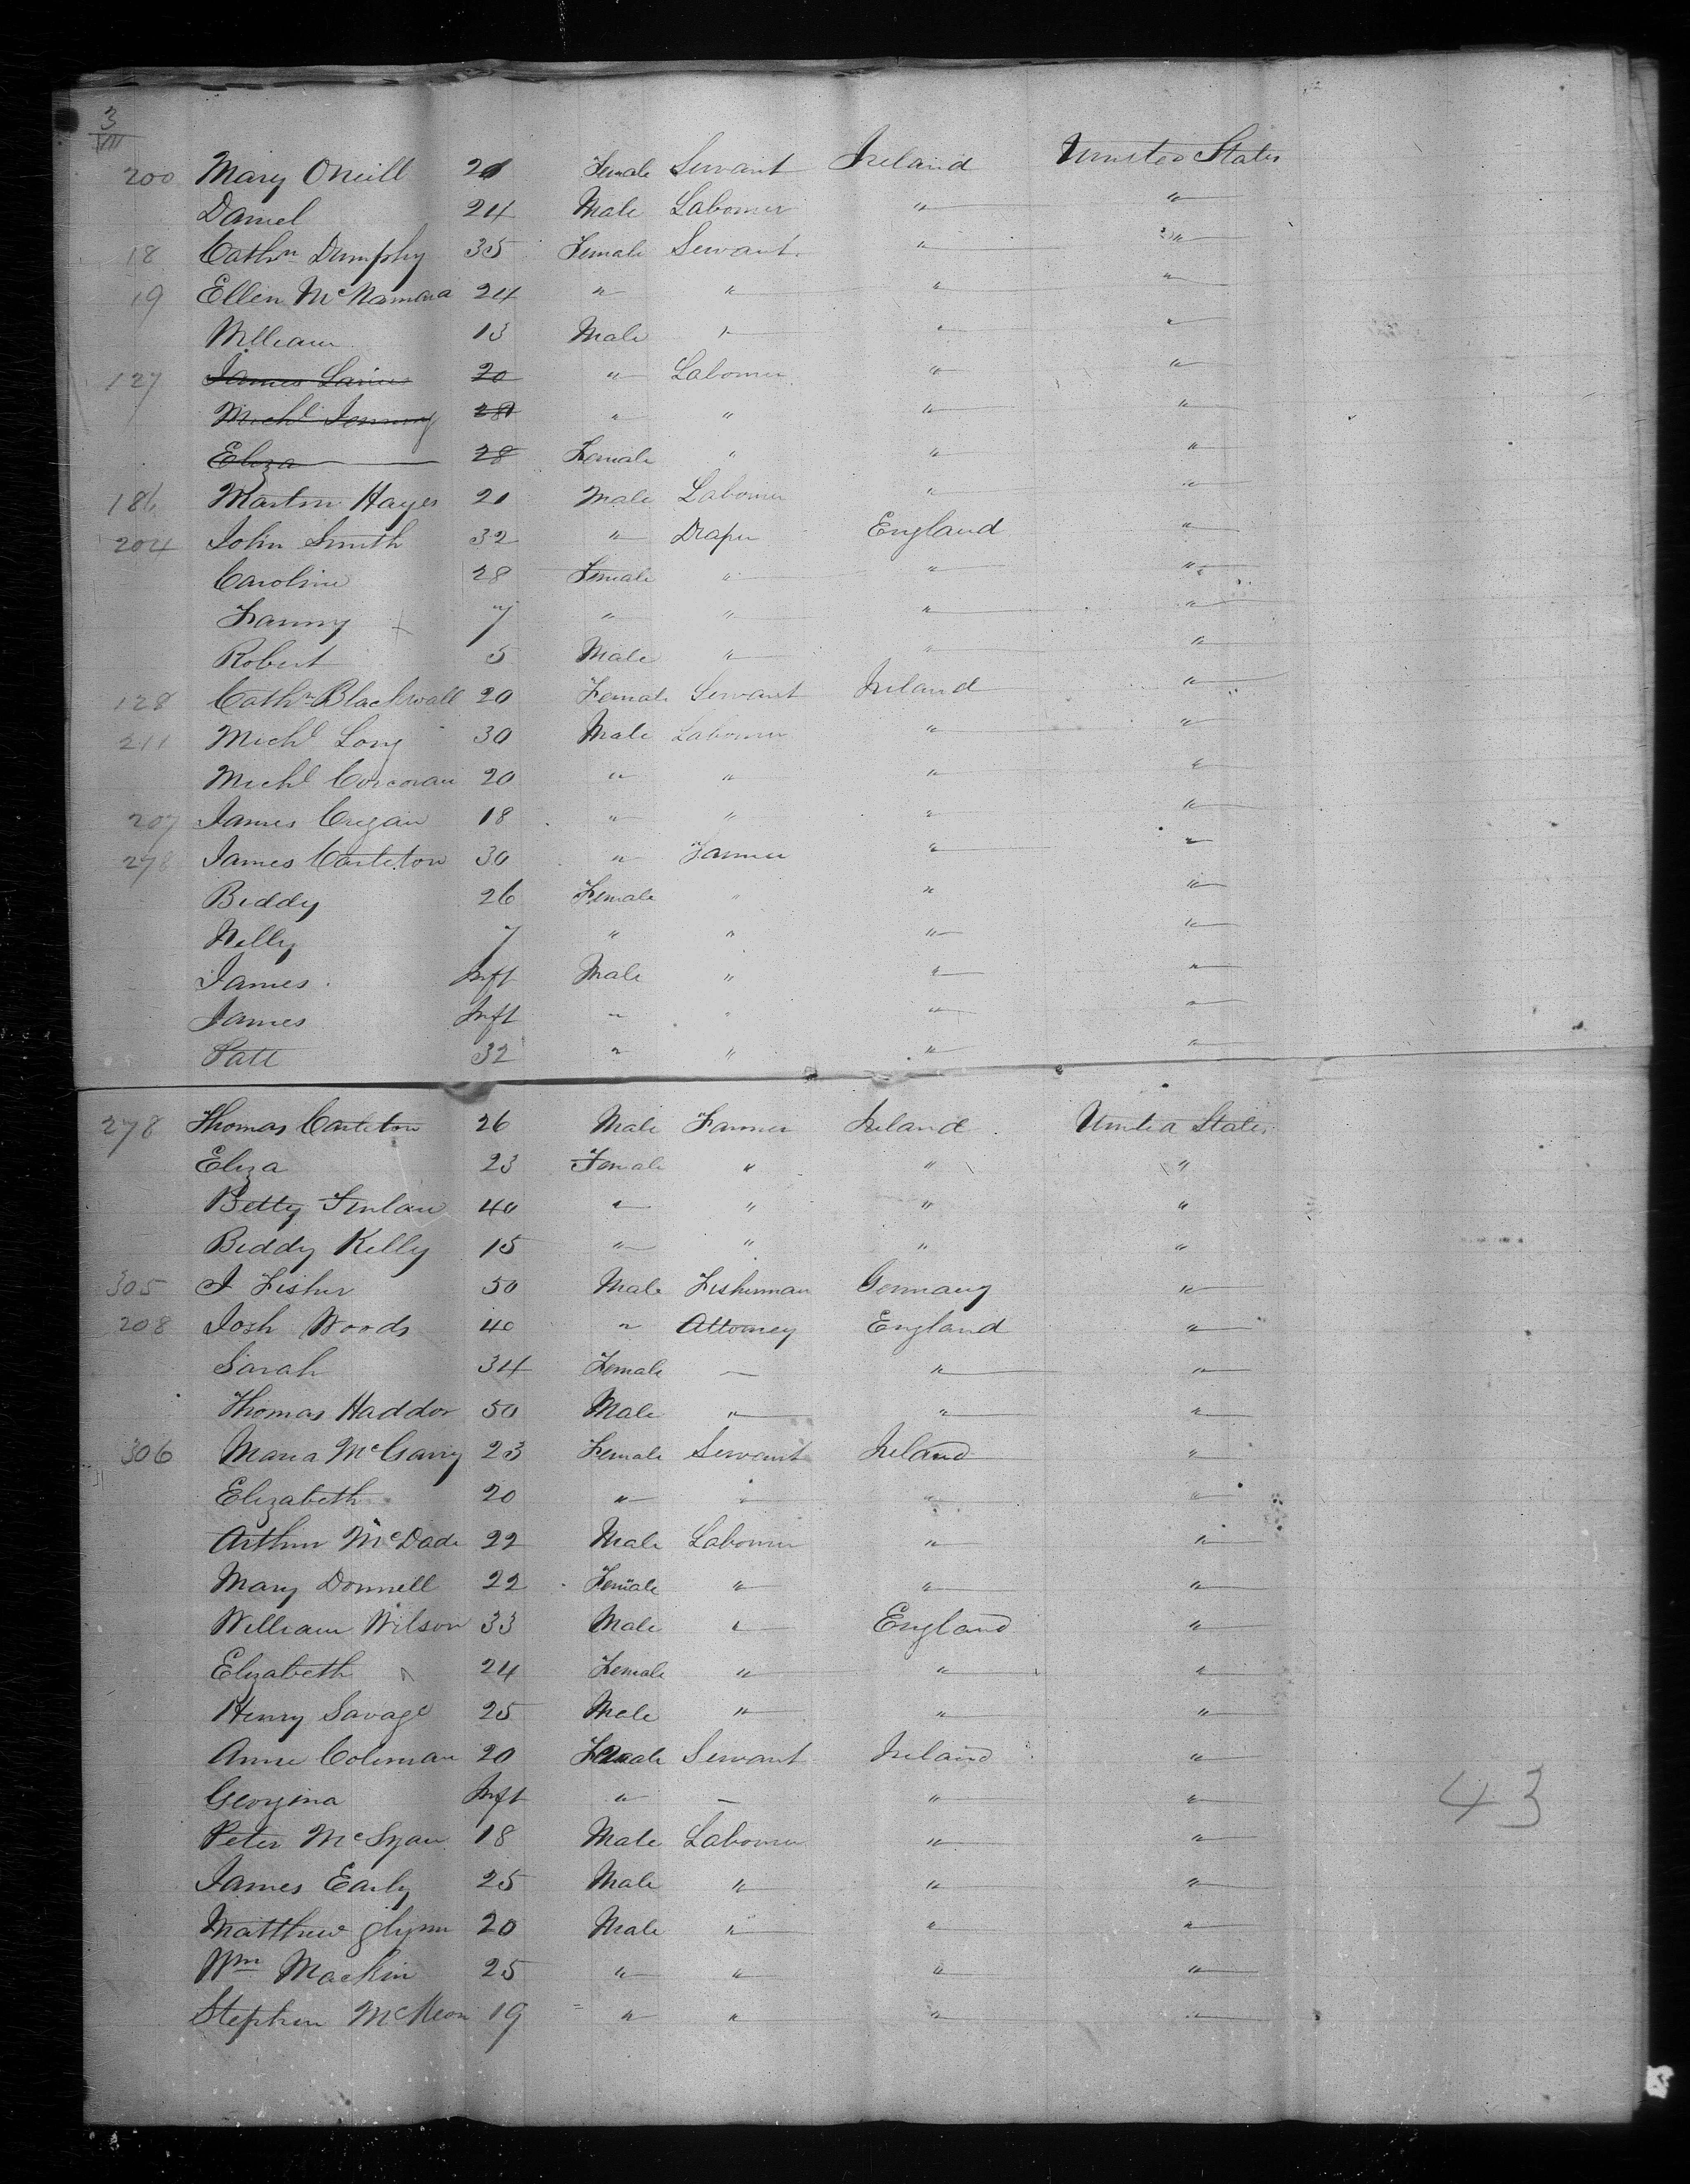 3
VII
200 Mary ONeill 21 Female Servant Ireland United States
Daniel 24 Male Labourer " "
18 Cathn Dumphy 35 Female Servant " "
19 Ellen McNamara 24 " " " "
William 13 Male " " "
127 James 20 " Labourer " "
Michl 28 " " " "
Eliza 28 Female " " "
186 Martin Hayes 21 Male Labourer " "
204 John Smith 32 " Draper England "
Caroline 28 Female " " "
Fanny 7 " " " "
Robert 5 Male " " "
128 Cathn Blackwall 20 Female Servant Ireland "
211 Michl Long 30 Male Labourer " "
Michl Corcoran 20 " " " "
207 James Cregan 18 " " " "
278 James Carleton 30 " Farmer " "
Biddy 26 Female " " "
Nelly 7 " " " "
James Inft Male " " "
James Inft " " " "
Patt 32 " " " "
278 Thomas Carleton 26 Male Farmer Ireland United States
Eliza 23 Female " " "
Betty Finlan 40 " " " "
Biddy Kelly 15 " " " "
305 J Fisher 50 Male Fisherman Germany "
208 Josh Woods 40 " Attorney England "
Sarah 34 Female — " "
Thomas Haddon 50 Male " " "
306 Maria McGarry 23 Female Servant Ireland "
Elizabeth 20 " " " "
Arthur McDade 22 Male Labourer " "
Mary Donnell 22 Female " " "
William Wilson 33 Male " England "
Elizabeth 24 Female " " "
Henry Savage 25 Male " " "
Anne Coleman 20 Female Servant Ireland "
Georgina Inft " — " "
43
Peter 18 Male Labourer " "
James Early 25 Male " " "
Matthew Glynn 20 Male " " "
Wm Mackin 25 " " " "
Stephen McKeon 19 " " " "